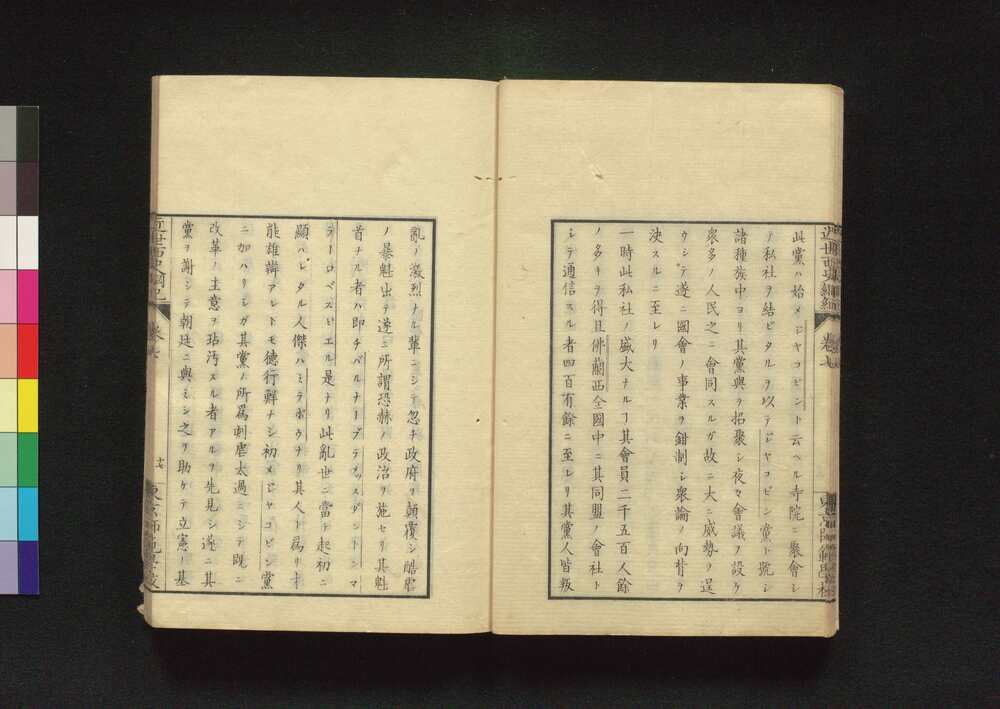 此黨ハ始メジヤコビント云ヘル寺院ニ聚會シ
テ私社ヲ結ビタルヲ以テジヤコビン黨ト號シ
諸種族中ヨリ其黨與ヲ招聚シ夜々會議ヲ設ケ
衆多ノ人民之ニ會同スルガ故ニ大ニ威勢ヲ逞
ウシテ遂ニ國會ノ事業ヲ鉗制シ衆論ノ向背ヲ
決スルニ至レリ
一時此私社ノ盛大ナルヿ其會員二千五百人餘
ノ多キヲ得且佛蘭西全國中ニ其同盟ノ會社ト
シテ通信スル者四百有餘ニ至レリ其黨人皆叛
亂ノ激烈ナル輩ニシテ忽チ政府ヲ顛覆シ酷虐
ノ暴魁出テ遂ニ所謂恐赫ノ政治ヲ施セリ其魁
首ナル者ハ即チバルナーブデゥッスダントンマ
ラーロベスピエル是ナリ此亂世ニ當テ起初ニ
顯ハレタル人傑ハミラボウナリ其人ト爲リ才
能雄辯アレトモ德行鮮ナシ初メジヤコビン黨
ニ加ハリシガ其黨ノ所爲刺虐太過ニシテ既ニ
改革ノ主意ヲ玷汚スル者アルヲ先見シ遂ニ其
黨ヲ謝シテ朝廷ニ與ミシ之ヲ助ケテ立憲ノ基
近世西史綱紀
卷七